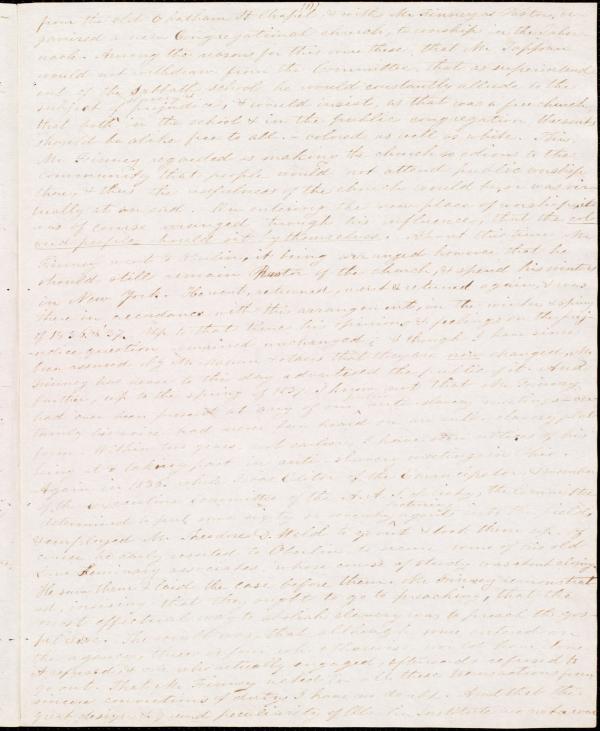 from the old Chatham St Chapel, & with Mr Finney as Pastor, or-
ganized a new Congregational church, to worship in the Taber-
nacle. Among the reasons for this were these, that Mr Tappan
would not withdraw from the Committee, that as superintend-
ent of the Sabbath school he would constantly allude to the
subject of prejudice, & would insist, as that was a free church,
that both in the school & in the public congregation the seats
should be alike free to all – colored as well as white. This
Mr Finney regarded as making the church so odious to the
community that people would not attend public worship
there, & thus the usefulness of the church would be, or was vir-
tually at an end. On entering the new place of worship it
was of course arranged, through his influence, that the col-
ored people should sit by themselves. About this time Mr
Finney went to Oberlin, it being arranged however that he
should still remain Pastor of the church, & spend his winters
in New York. He went, returned, went & returned again, & was
there in accordance with this arrangement, in the winter & spring
of 1836 & 37. Up to that time his opinions & feelings on the prej-
udice question remained unchanged; & though I have since
been assured by Mr Mahan & others that they are now changed, Mr
Finney has never to this day advertised the public of it. And
further, up to the spring of 1837 I know not that Mr Finney
had ever been present at any of our public anti-slavery meetings,
certainly his voice had never been heard on an anti-slavery plat-
form. Within two years, not earlier, I have seen notices of his
being at & taking part in anti-slavery meetings in Ohio.
Again in 1836 while I was Editor of the Emancipator, & member
of the Executive Committee of the A. A. S. Society, the Committee
determined to put some sixty or seventy agents into the field,
& employed Mr Theodore D. Weld to go out & look them up. Of
course he early resorted to Oberlin to secure some of his old
Lane Seminary associates, whose course of study was about closing.
He saw them & laid the case before them. Mr Finney remonstrat-
ed, insisting that they ought to go to preaching, that the
most effectual way to abolish slavery was to preach the gos-
pel &c. The result was, that although some entered on
the agency, there were some who otherwise would have gone
refused, & one who actually engaged, afterwards refused to
go out. That Mr Finney acted in all these transactions from
sincere convictions of duty, I have no doubt. And that the
great design & grand peculiarity of Oberlin Institute was not a